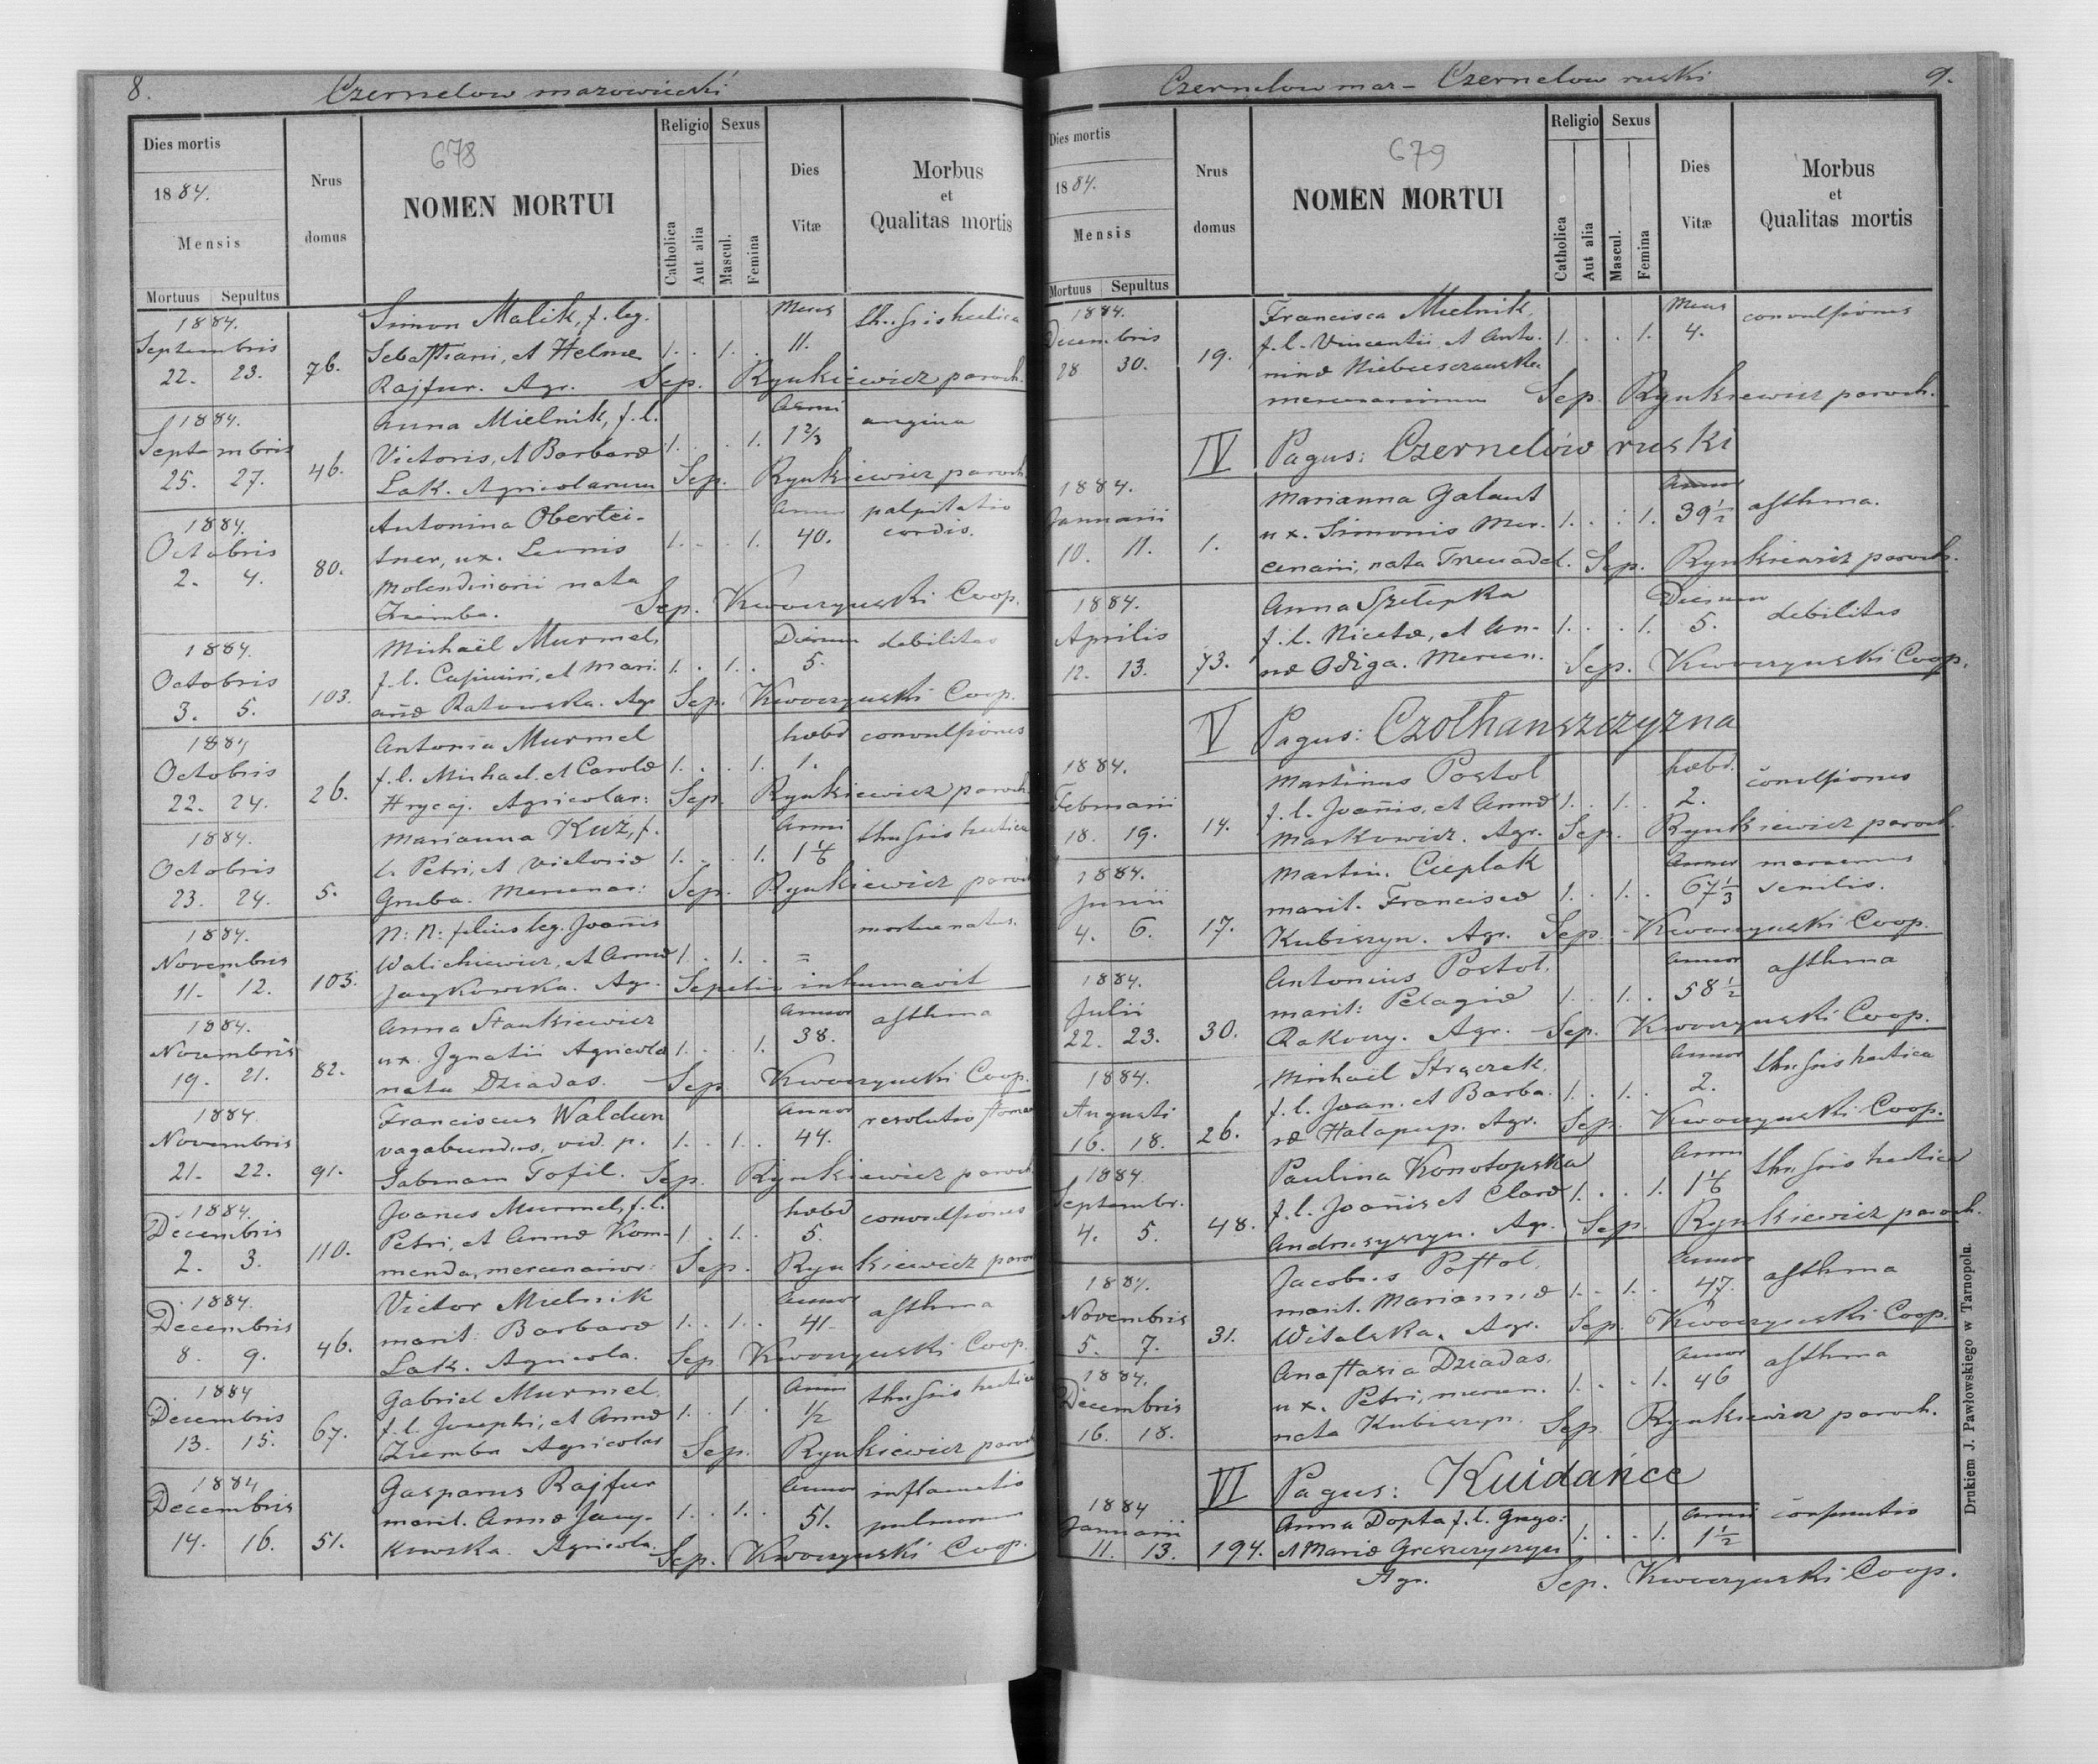 8.
Czernelow mazowiecki
Dies mortis
1884.
Mensis
Mortuus Sepultus
Nrus domus
678
NOMEN MORTUI
Religio
Catholica
Aut alia
Sexus
Mascul.
Femina
Dies Vitæ
Morbus
et
Qualitas mortis
1884.
Septembris
22. 23. 76.
Simon Malik, f. leg.
Sebastiani, et Helenæ
Rajfur. Agr.
1. 1.
Mens
11.
Sep. Rynkiewicz paroch.
1884.
Septembris
25. 27. 46.
Anna Mielnik, f. l.
Victoris, et Barbaræ
Łak. Agricolarum
1. 1.
Anni
1 2/3
angina
Sep. Rynkiewicz paroch.
1884.
Octobris
2. 4. 80.
Antonina Obertei-
tner, ux. Leonis
Molendinarii nata
Ziemba.
1. 1.
Annor
40.
palpitatio
cordis.
Sep. Kwoczyński Coop.
1884.
Octobris
3. 5. 103.
Michaël Murmel,
f. l. Casimiri, et Mari-
anæ Ratowska. Agr
1. 1.
Dierum
5.
debilitas
Sep. Kwoczyński Coop.
1884
Octobris
22. 24. 26.
Antonia Murmel
f. l. Michael. et Carolæ
Hrycaj. Agricolar:
1. 1.
hebd
1.
convulsiones
Sep. Rynkiewicz paroch.
1884.
Octobris
23. 24. 5.
Marianna Kuź, f.
l. Petri, et Victoriæ
Gruba. Mercenar:
1. 1.
Anni
1 1/6
Sep. Rynkiewicz paroch
1884.
Novembris
11. 12. 103.
N: N: filius leg. Joannis
Walichiewicz, et Annæ
Agr.
1. 1. =
mortuus natus.
inhumavit
1884.
Novembris
19. 21. 82.
Anna Stankiewicz
ux. Ignatii Agricolæ
nata Dziadas.
1. 1.
Annor
38.
asthma
Sep. Kwoczyński Coop.
1884.
Novembris
21. 22. 91.
Franciscus Waldun
vagabundus, vid. p.
Tofil.
1. 1.
Annor
44.
resolutio
Sep. Rynkiewicz paroch
1884.
Decembris
2. 3. 110.
Joanes Murmel, f. l.
Petri, et Annæ Kom-
menda, mercenarior:
1. 1.
hebd
5.
convulsiones
Sep. Rynkiewicz paroch
1884.
Decembris
8. 9. 46.
Victor Mielnik
marit: Barbaræ
Łak. Agricola.
1. 1.
Annor
41.
asthma
Sep. Kwoczyński Coop.
1884
Decembris
13. 15. 67.
Gabriel Murmel
f. l. Josephi, et Annæ
Ziemba Agricolar
1. 1.
Anni
1/2
Sep. Rynkiewicz paroch
1884
Decembris
14. 16. 51.
Gasparus Rajfur
marit. Annæ Jany-
kowska. Agricola.
1. 1.
Annor
51.
inflamatio
pulmonum
Sep. Kwoczyński Coop.
Czernelow maz - Czernelow ruski
9.
Dies mortis
1884.
Mensis
Mortuus Sepultus
Nrus domus
679
NOMEN MORTUI
Religio
Catholica
Aut alia
Sexus
Mascul.
Femina
Dies Vitæ
Morbus
et
Qualitas mortis
1884.
Decembris
28 30. 19.
Francisca Mielnik,
f. l. Vincentii, et Anto-
ninæ
mercenariorum
1. 1.
Mens
4.
convulsiones
Sep. Rynkiewicz paroch.
IV Pagus: Czernelów ruski
1884.
Januarii
10. 11. 1.
Marianna Galant
ux. Simonis Mer-
cenarii, nata Trznadel.
1. 1.
Annor
39 1/2
asthma.
Sep. Rynkiewicz paroch.
1884.
Aprilis
12. 13. 73.
Anna Szelepka
f. l. Nicetæ, et An-
næ Odiga. Mercen.
1. 1.
Dierum
5.
debilitas
Sep. Kwoczyński Coop.
V Pagus: Czołhanszczyzna
1884.
Februarii
18. 19. 14.
Martinus Postol
f. l. Joannis, et Annæ
Markowicz. Agr.
1. 1.
hebd.
2.
Sep. Rynkiewicz paroch.
1884.
Junii
4. 6. 17.
Martin. Cieplak
marit. Franciscæ
Kubiszyn. Agr.
1. 1.
Annor
67 1/3
marasmus
senilis.
Sep. Kwoczyński Coop.
1884.
Julii
22. 23. 30.
Antonius Postol.
marit: Pelagiæ
Rakoczy. Agr.
1. 1.
Annor
58 1/2
asthma
Sep. Kwoczyński Coop.
1884.
Augusti
16. 18. 26.
Michaël Strączek,
f. l. Joan. et Barba-
ræ Hałapup. Agr.
1. 1.
Annor
2.
Sep. Kwoczyński Coop.
1884.
Septembr.
4. 5. 48.
Paulina Konotopska
f. l. Joannis et Claræ
Andruszyszyn. Agr.
1. 1.
Anni
1 1/6
Sep. Rynkiewicz paroch.
1884.
Novembris
5. 7. 31.
Jacobus Postol,
marit. Mariannæ
Witalska. Agr.
1. 1.
Annor
47.
asthma
Sep. Kwoczyński Coop.
1884.
Decembris
16. 18.
Anastasia Dziadas.
ux. Petri, mercen.
nata Kubiszyn.
1. 1.
Annor
46
asthma
Sep. Rynkiewicz paroch.
VI Pagus: Kuidańce
1884
Januarii
11. 13. 194.
Anna Dopta f. l. Grego:
et Mariæ Greszczyszyn
Agr.
1. 1.
Anni
1 1/2
Sep. Kwoczyński Coop.
Drukiem J. Pawłowskiego w Tarnopolu.